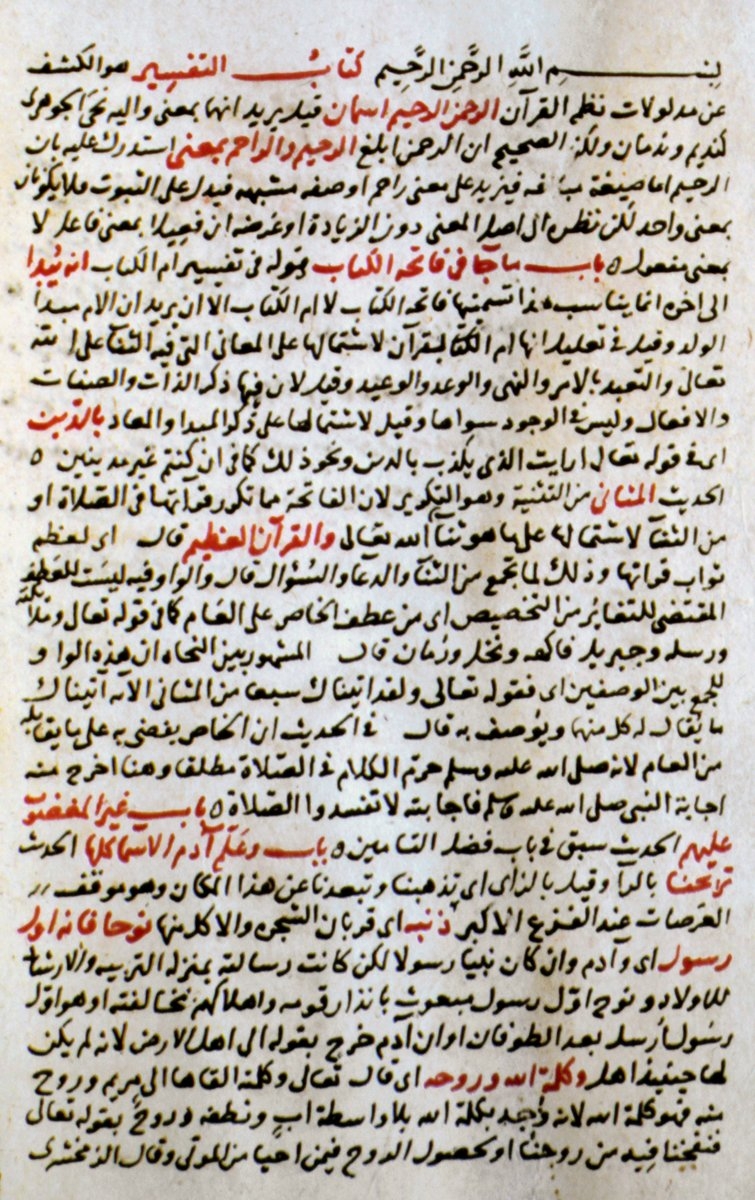 بسم الله الرحمن الرحيم كتاب التفسير هو الكشف
عن مدلولات نظم القرآن الرحمن الرحيم اسمان قيل يريد انها بمعنى واليه نحى الجوهرى
كنديم وندمان ولكن الصحيح ان الرحمن ابلغ الرحيم والراحم بمعنى استدرك عليه بان
الرحيم اما صيغة مبالغه فيزيد على معنى راحم او صفه مشبهه فيدل على الثبوت فلا يكونان
بمعنى واحد لكن نظره الى اصل المعنى دون الزيادة او غرضه ان فعيلا بمعنى فاعل لا
بمعنى مفعول ٥ باب ما جآ فى فاتحه الكتاب قوله فى تفسير ام الكتاب انه يُبدا
الى اخره انما يناسب هذا تسميتها فاتحه الكتاب لا ام الكتاب الا ان يريد ان الام مبدا
الولد وقيل فى تعليل انها ام الكتاب لقرآن لاشتمالها على المعانى التى فيه الثنآ على الله
تعالى والتعبد بالامر والنهى والوعد والوعيد وقيل لان فيها ذكر الذات والصفات
والافعال وليس فى الوجود سواها وقيل لاشتمالها على ذكر المبدا والمعاد بالدين
اى فى قوله تعالى ارايت الذى يكذب بالدين ونحو ذلك كما فى ان كنتم غير مدينين ٥
الحديث المثانى من التثنية وهو التكرير لان الفاتحة مما تكرر قرآتها فى الصلاة او
من الثنآ لاشتمالها على ما هو ثنآ الله تعالى والقرآن العظيم قال اى لعظم
ثواب قراتها وذلك لما تجمع من الثنآ والدعآ والسُؤال قال والواو فيه ليست للعطف
المقتضى للتغاير من التخصيص اى من عطف الخاص على العام كما فى قوله تعالى وملائكته
ورسله وجبريل فاكهه ونخل ورُمان قال المشهور بين النحاه ان هذه الواو
للجمع بين الوصفين اى فقوله تعالى ولقد اتيناك سبعا من المثانى الآيه آتيناك
ما يُقال له كل منها ويوصف به قال فى الحديث ان الخاص يقضى به على ما يقابله
من العام لانه صلى الله عليه وسلم حرم الكلام فى الصّلاة مطلقا وهنا اخرج منه
اجابة النبى صلى الله عليه وسلم فاجابته لا تفسدوا الصّلاة ٥ باب غير المغضوب
عليهم الحديث سبق فى باب فضل التامين ٥ باب وعَلّم آدم الاسمآ كلها الحديث
تريحنا بالرآ وقيل بالزاى اى تذهبنا وتبعدنا عن هذا المكان وهو موقف
العرصات عند الفزع الاكبر ذنبه اى قربان الشجره والاكل منها نوحا فانه اول
رسول اى وآدم وان كان نبيا رسولا لكن كانت رسالته بمنزله التربيه والارشاد
للاولاد ونوح اوّل رسول مبعوث بانذار قومه واهلاكهم نخالفته او هو اوّل
رسُول اُرسل بعد الطوفان او ان آدم خرج بقوله الى اهل الارض لانه لم يكن
لها حينيذ اهل وكلمة الله وروحه اى قال تعالى وكلمة القاها الى مريم وروح
منه فهو كلمة الله لانه وُجد بكلمة الله بلا واسطة ابٍ ونطفه وروحٌ بقوله تعالى
فنفخنا فيه من روحنا او لحصول الروح فيمن احيا من الموتى وقال الزمخشرى